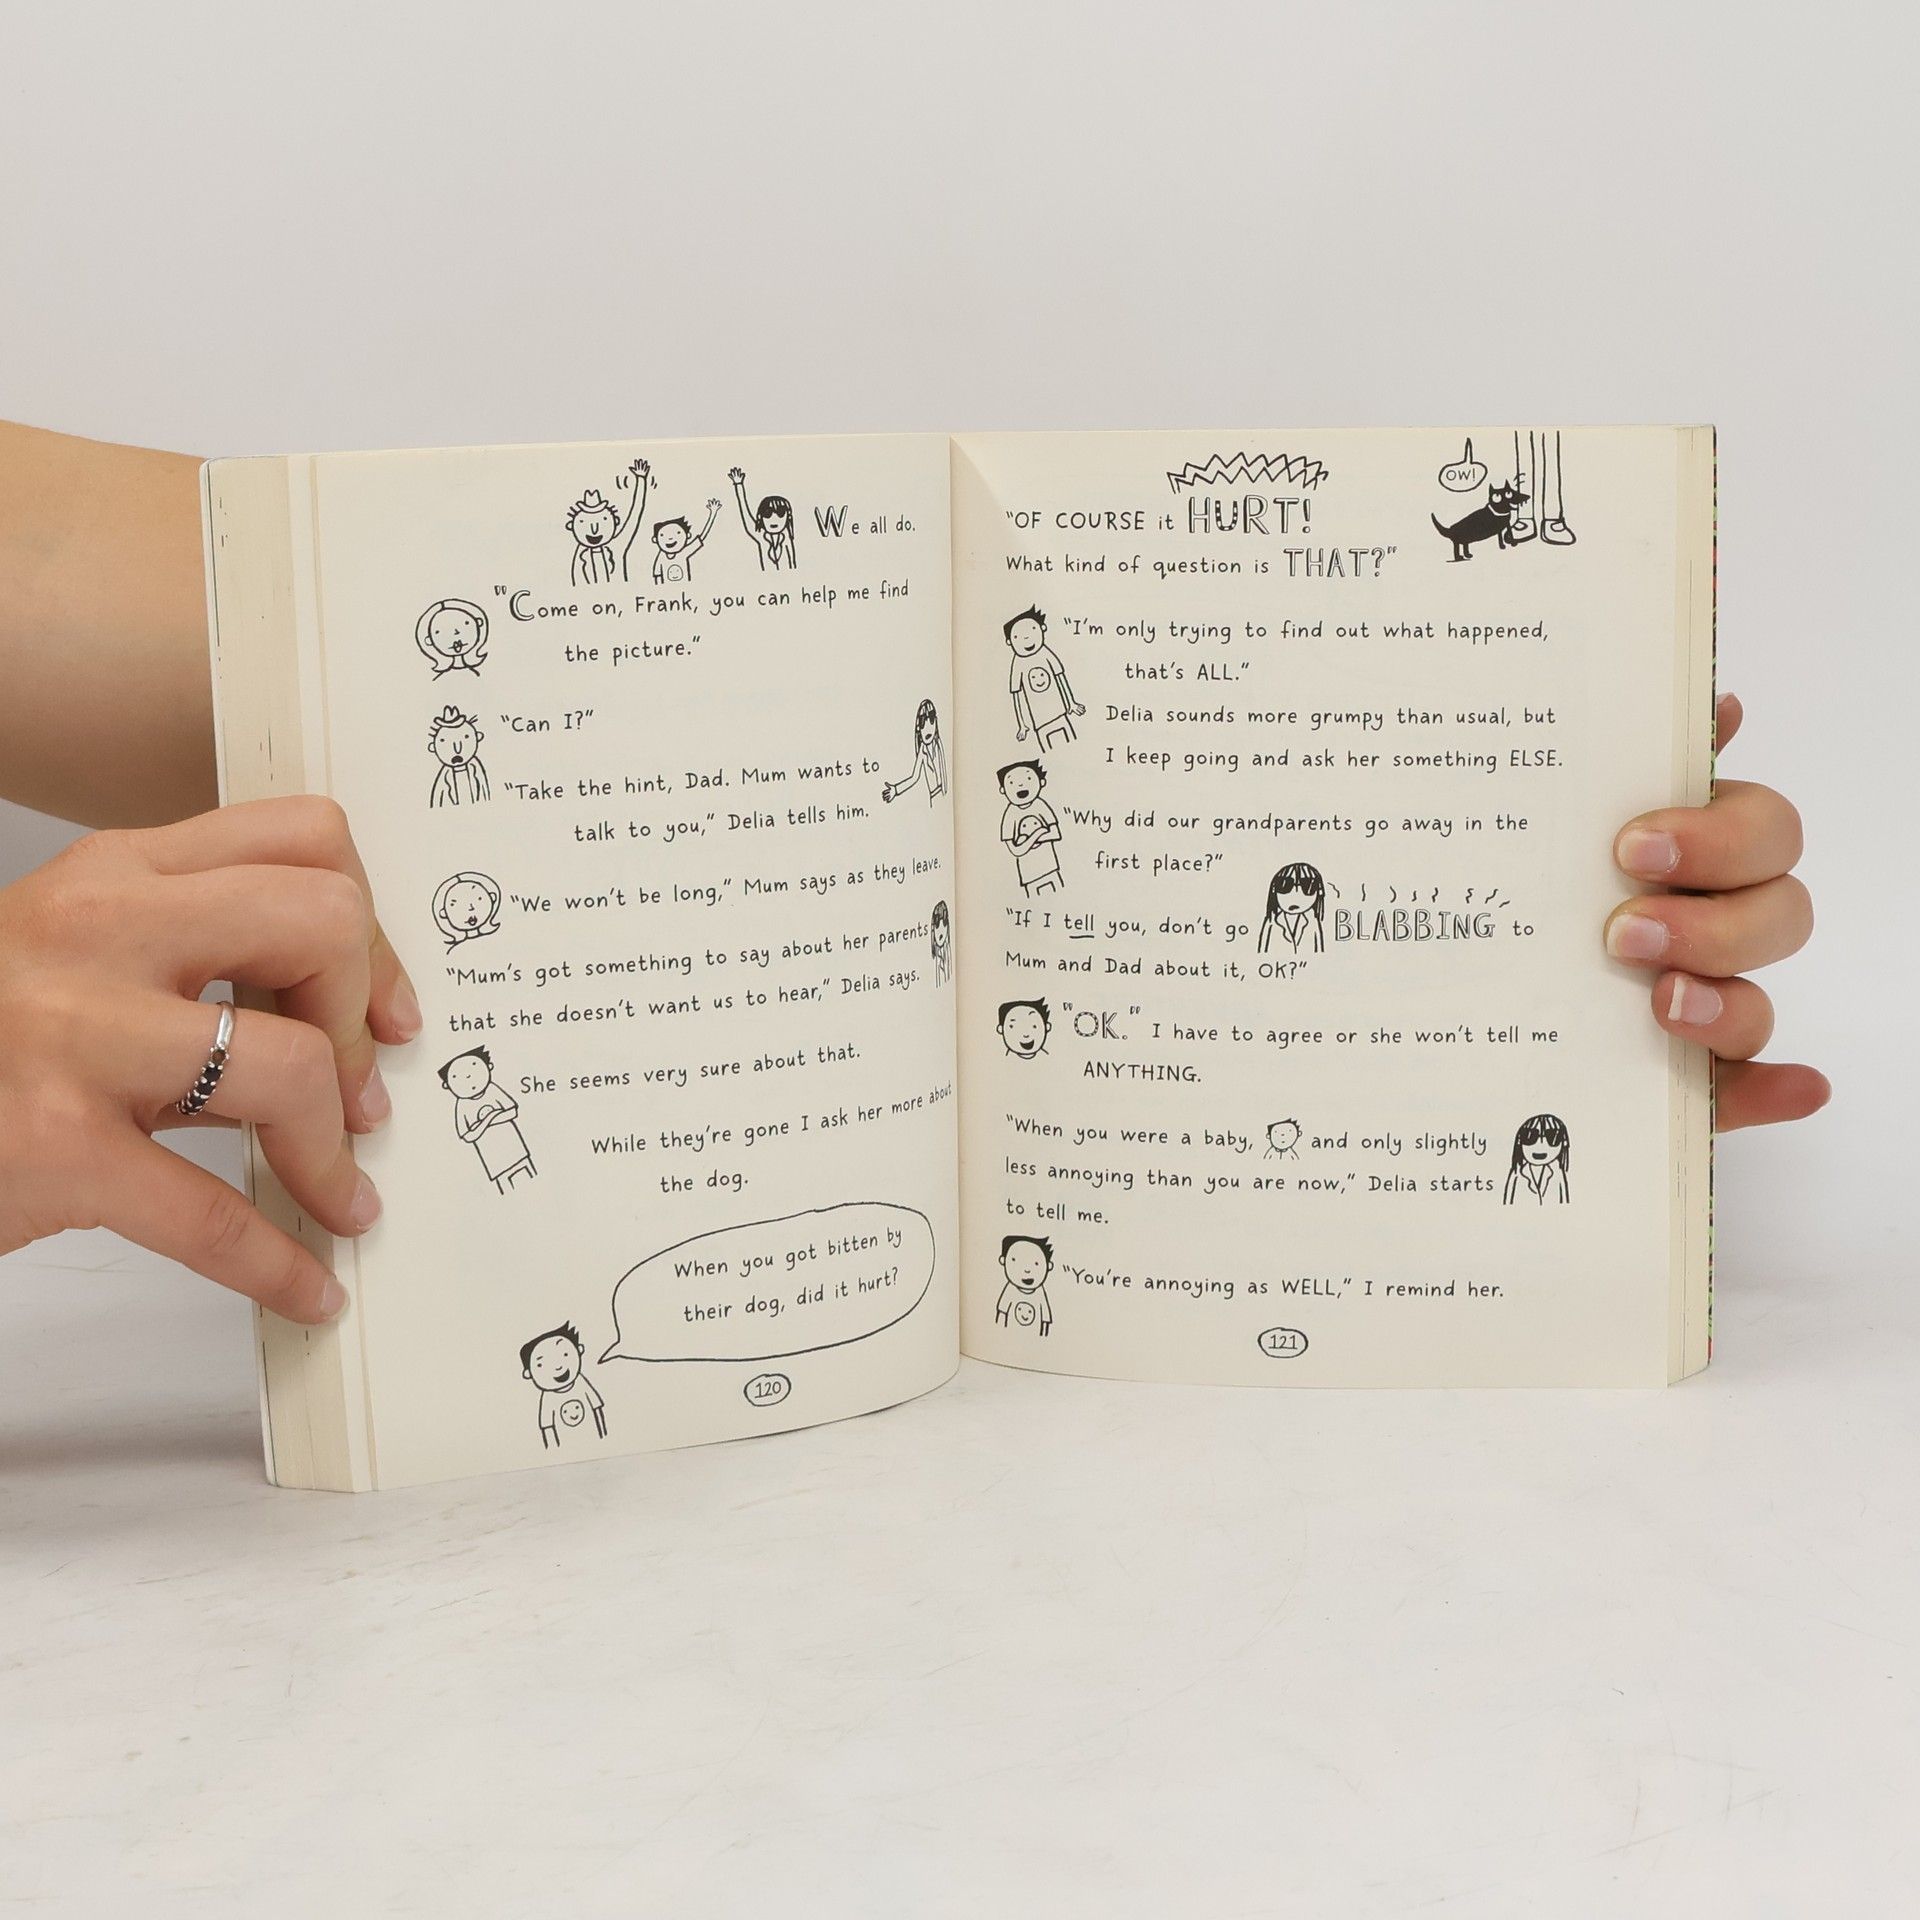 We all do.
"Come on, Frank, you can help me find
the picture."
"Can I?"
"Take the hint, Dad. Mum wants to
talk to you," Delia tells him.
"We won't be long," Mum says as they leave.
"Mum's got something to say about her parents
that she doesn't want us to hear," Delia says.
She seems very sure about that.
While they're gone I ask her more about
the dog.
When you got bitten by
their dog, did it hurt?
120
OW!
"OF COURSE it HURT!
What kind of question is THAT?"
"I'm only trying to find out what happened,
that's ALL."
Delia sounds more grumpy than usual, but
I keep going and ask her something ELSE.
"Why did our grandparents go away in the
first place?"
"If I tell you, don't go BLABBING to
Mum and Dad about it, OK?"
"OK." I have to agree or she won't tell me
ANYTHING.
"When you were a baby, and only slightly
less annoying than you are now," Delia starts
to tell me.
"You're annoying as WELL," I remind her.
121